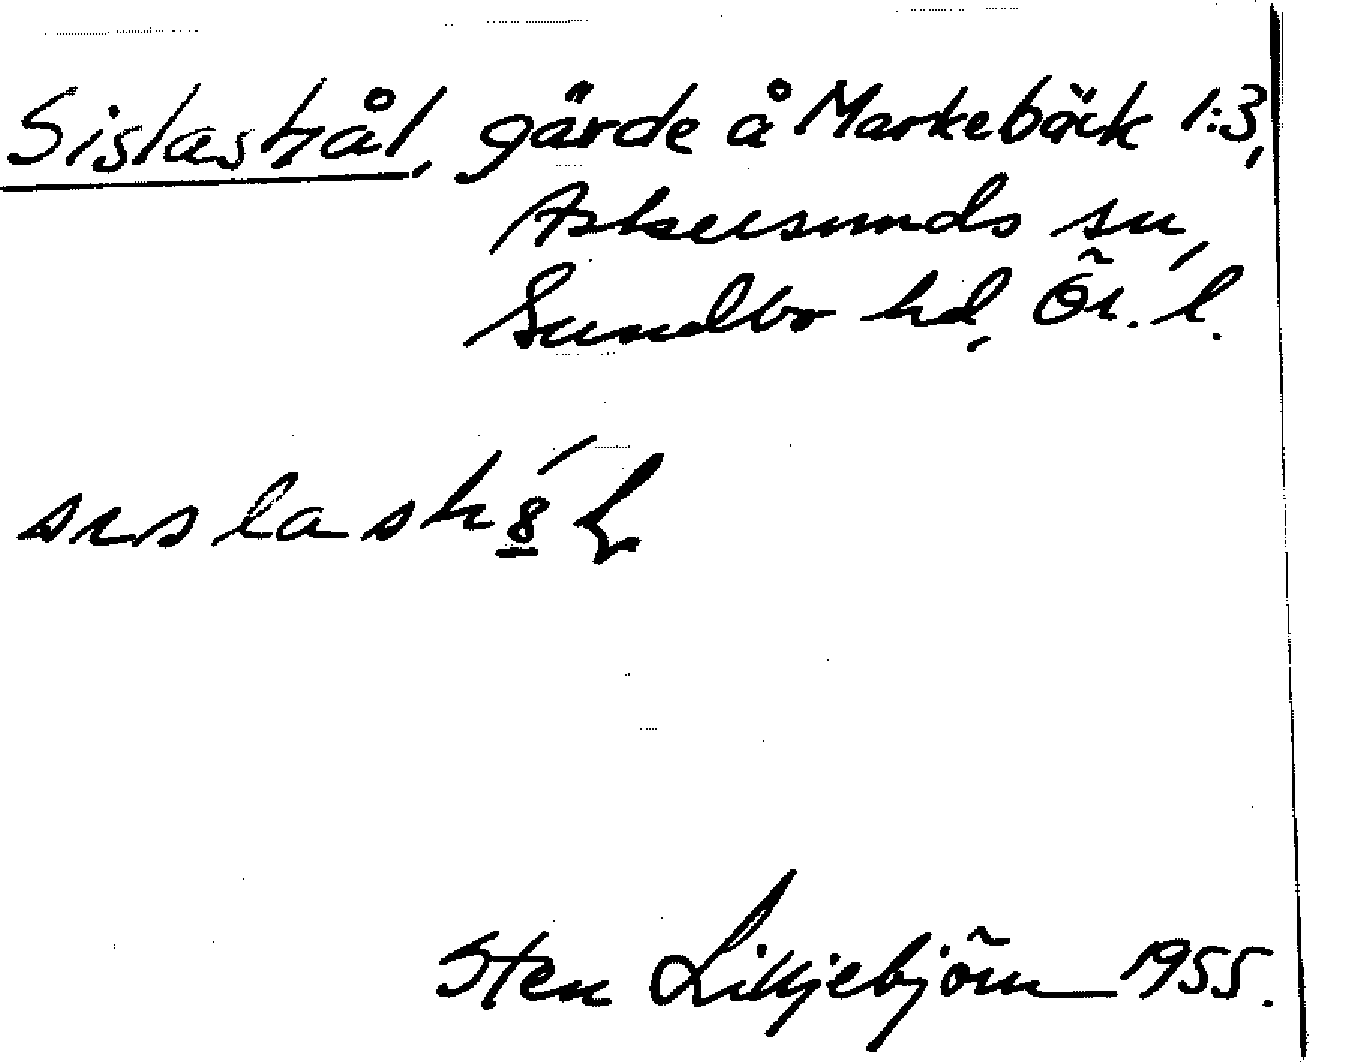 Sislashål, gärde å Markebäck 1:3,
Askersunds sn,
Sundbo hd, Ör. l.
Sten Lilljebjörn 1955.